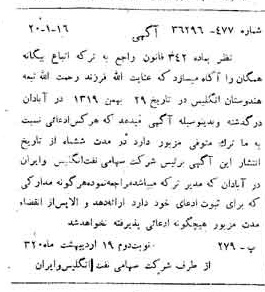 شماره ۴۷۷- ۳۶۲۹۶ آگهی ۱۶-۱-۲۰
نظر بماده ۳۴۲ قانون راجع به ترکه اتباع بیگانه
همگان را آگاه میسازد که عنایت الله فرزند رحمت الله تبعه
هندوستان انگلیس در تاریخ ۲۹ بهمن ۱۳۱۹ در آبادان
درگذشته وبدینوسیله آگهی میدهد که هرکس ادعائی نسبت
به ماترک متوفی مزبور دارد در مدت ششماه از تاریخ
انتشار این آگهی برئیس شرکت سهامی نفت انگلیس وایران
در آبادان که مدیر ترکه میباشد مراجعه نموده هرگونه مدارکی
که برای ثبوت ادعای خود دارد ارائه دهد و الا پس از انقضاء
مدت مزبور هیچگونه ادعائی پذیرفته نخواهد شد
پ- ۲۷۹ نوبت دوم ۱۹ اردیبهشت ماه ۳۲۰
از طرف شرکت سهامی نفت انگلیس وایران